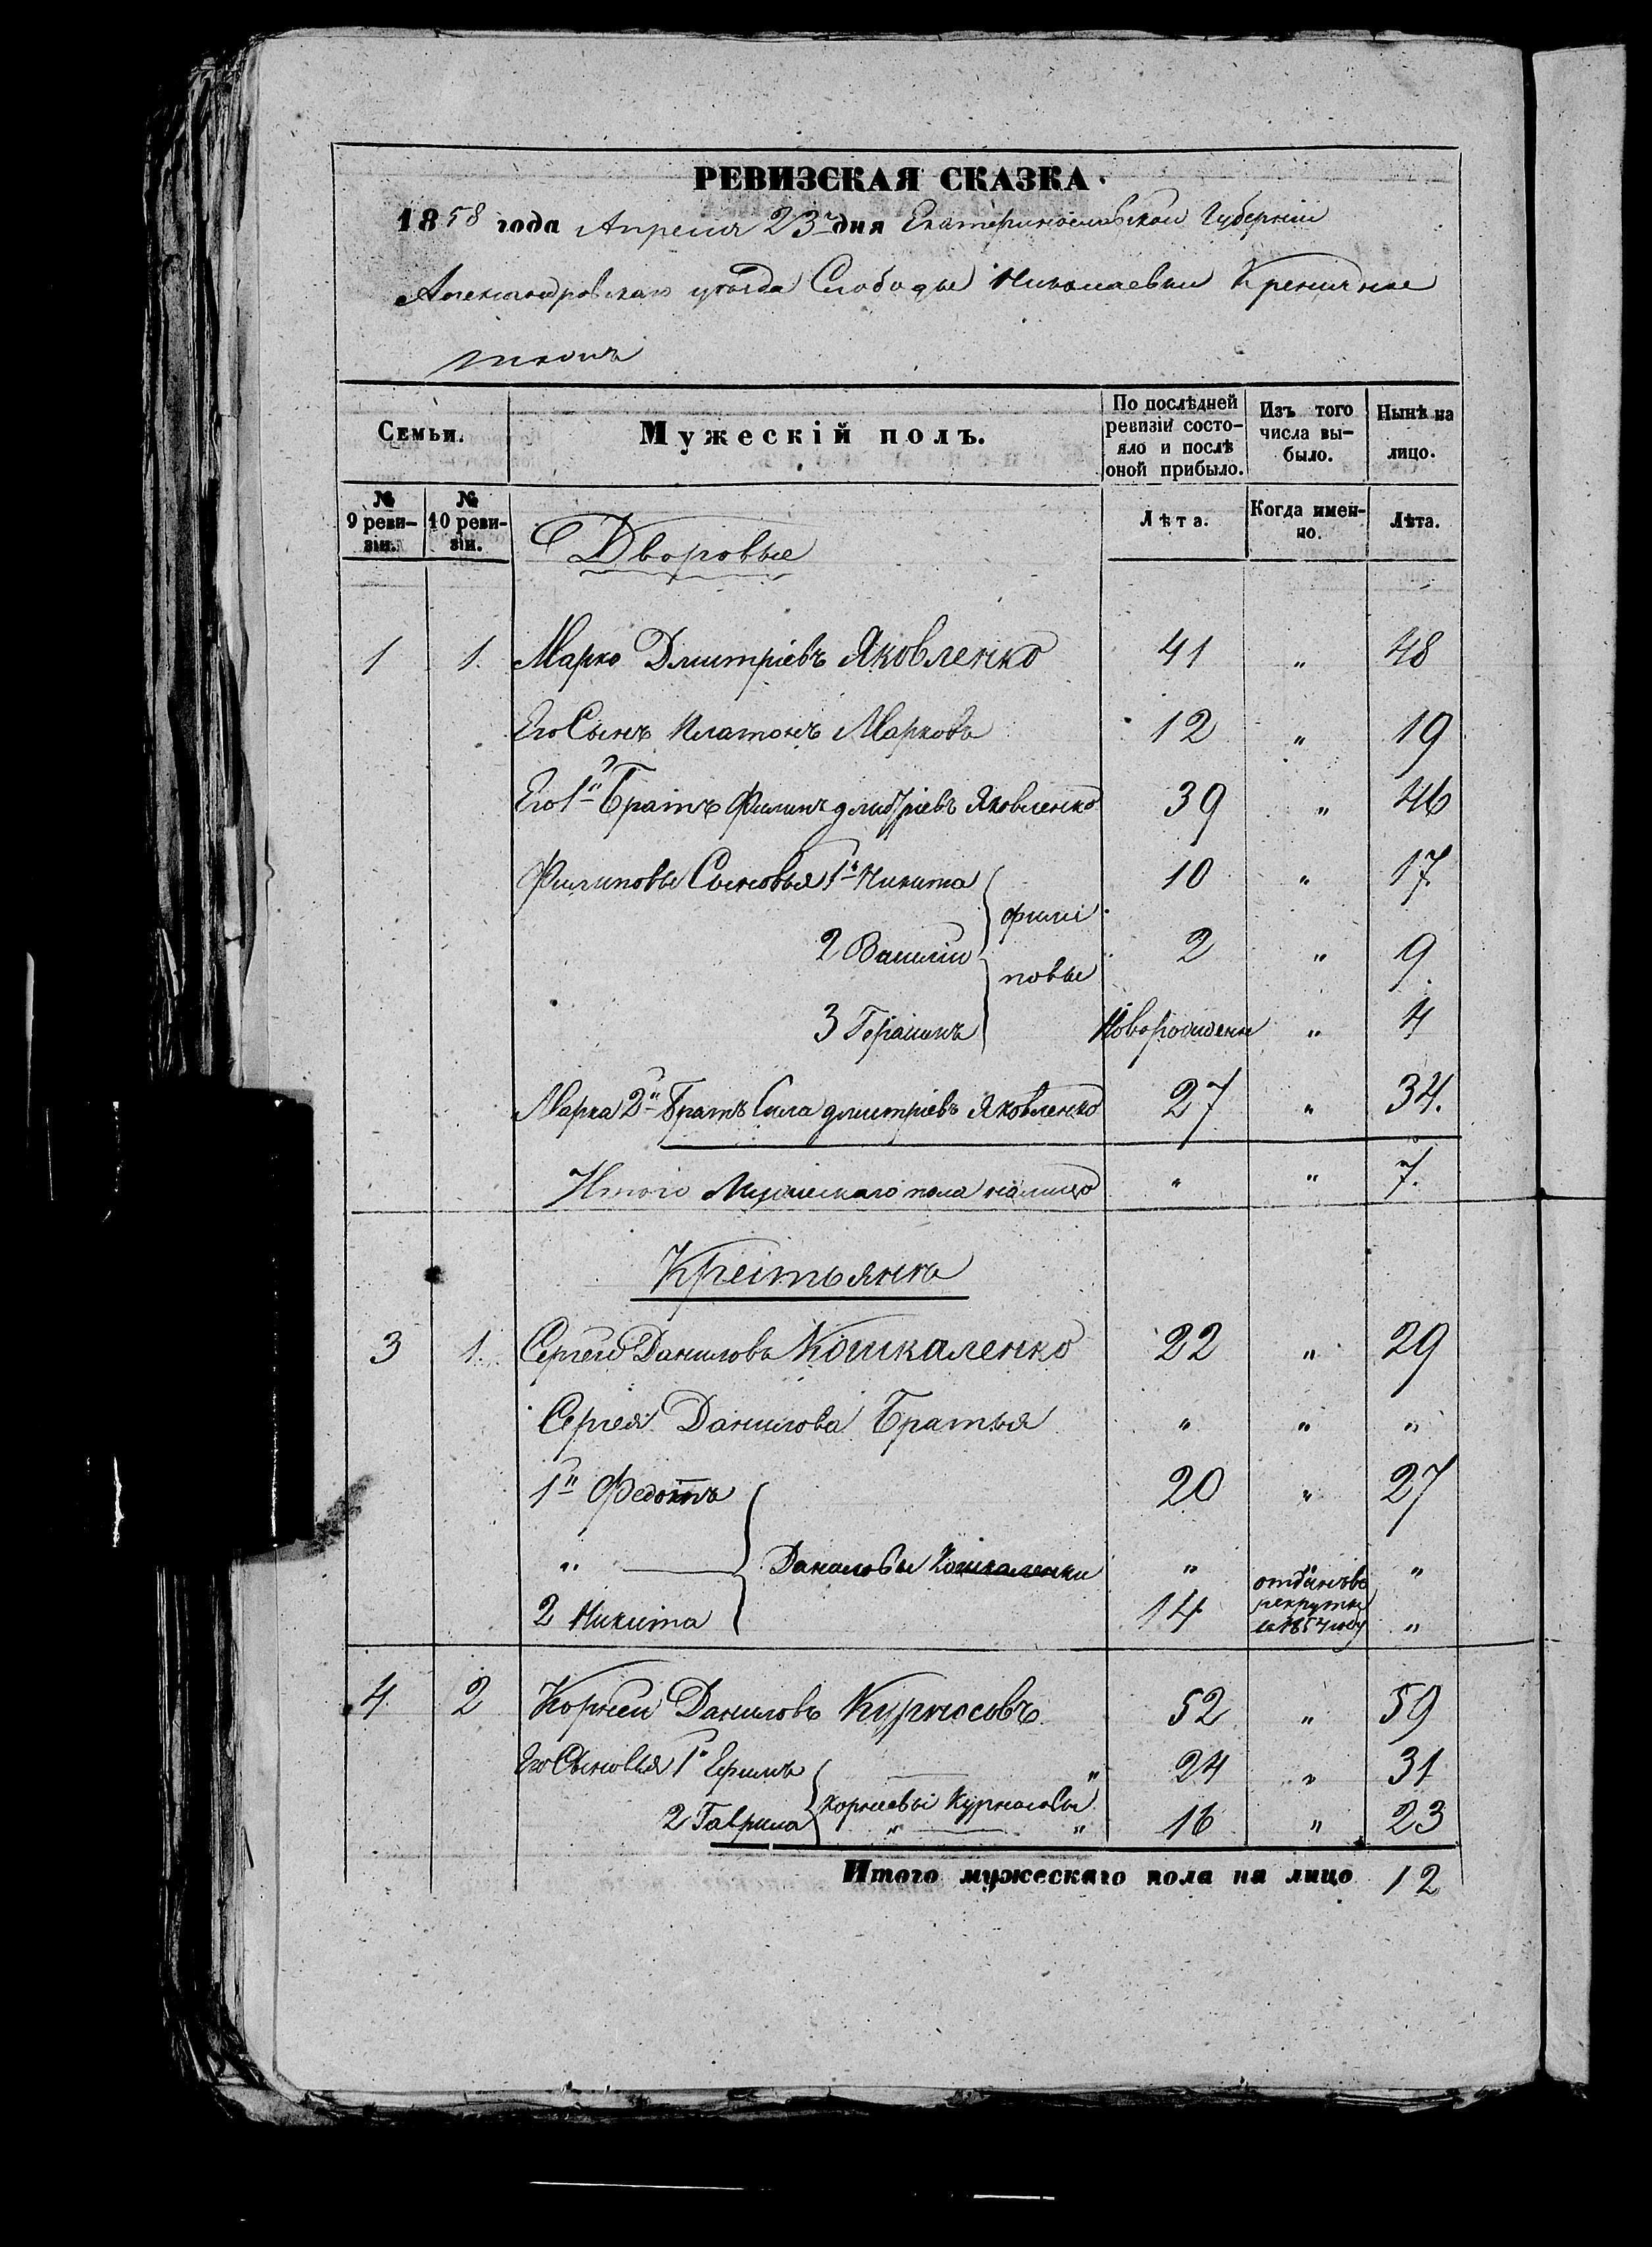 РЕВИЗСКАЯ СКАЗКА.
1858 года Апреля 23 дня Екатеринославской Губерніи
Александровскаго уѣзда Слободы Николаевки Криничное
тожъ
Семьи.
Мужескій полъ.
По послѣдней ревизіи состо-яло и послѣ оной прибыло.
Изъ того числа вы-было.
Нынѣ на лицо.
№ 9 реви-зіи.
№ 10 реви-зіи.
Лѣта.
Когда имен-но.
Лѣта.
Дворовые
1 1. Марко Дмитріевъ Яковленко 41 " 48
Его Сынъ Платонъ Марковъ 12 " 19
Его 1й Братъ Филипъ дмитріевъ Яковленко 39 " 46
Филиповы Сыновья 1й Никита 10 " 17.
филі
2 Василій 2 " 9.
повы
3 Герасимъ Новорожденъ " 4
Марка 2й Братъ Сила дмитріевъ Яковленко 27 " 34.
Итого Мужескаго пола налицо " " 7.
Крестьяна
3 1. Сергей Даниловъ Кошкаленко 22 " 29
Сергея Данилова Братья " " "
1й Федотъ 20 " 27
" Даниловы Кошкаленки " "
отданъ въ
2 Никита 14 рекруты "
въ 1854 году
4. 2 Корней Даниловъ Курносовъ 52 " 59
Его Сыновья 1й Ефимъ " 24 " 31
Корнеевы Курносовы
2 Гаврила " " 16 " 23
Итого мужескаго пола на лицо 12